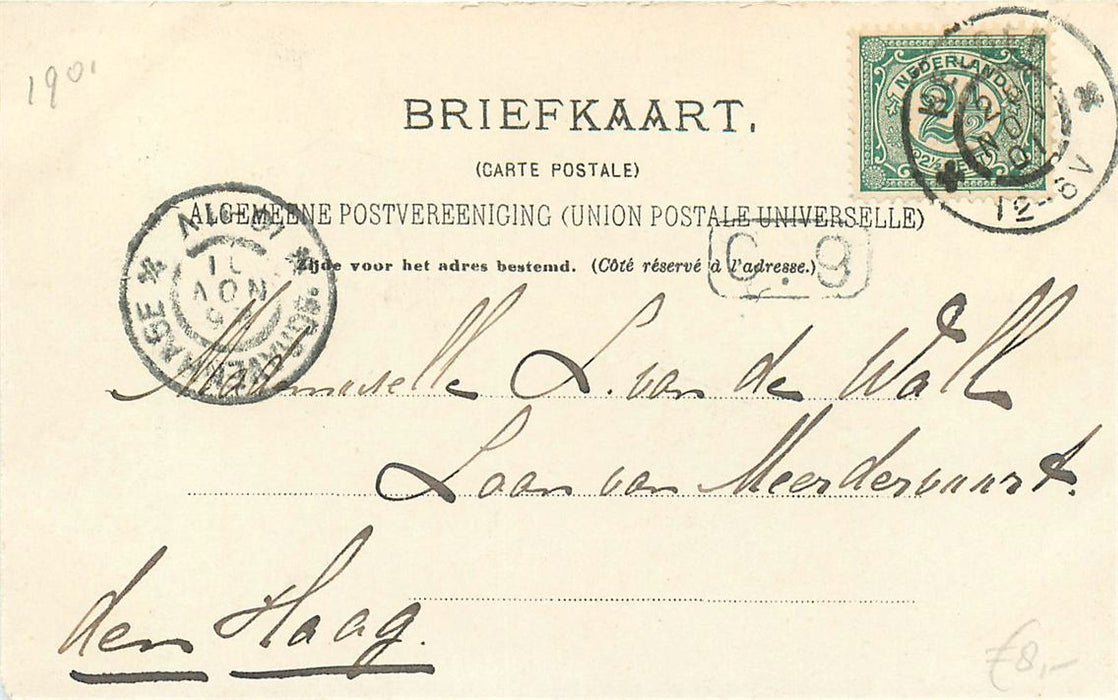 1901
BRIEFKAART.
(CARTE POSTALE)
ALGEMEENE POSTVEREENIGING (UNION POSTALE UNIVERSELLE)
Zijde voor het adres bestemd. (Côté réservé à l'adresse.)
NEDERLAND
2½
NOV
01
12-8V
'S GRAVENHAGE
11
NOV
C. 9
Mademoiselle L. van de Wall
Laan van Meerdervoort.
den Haag.
€8,-